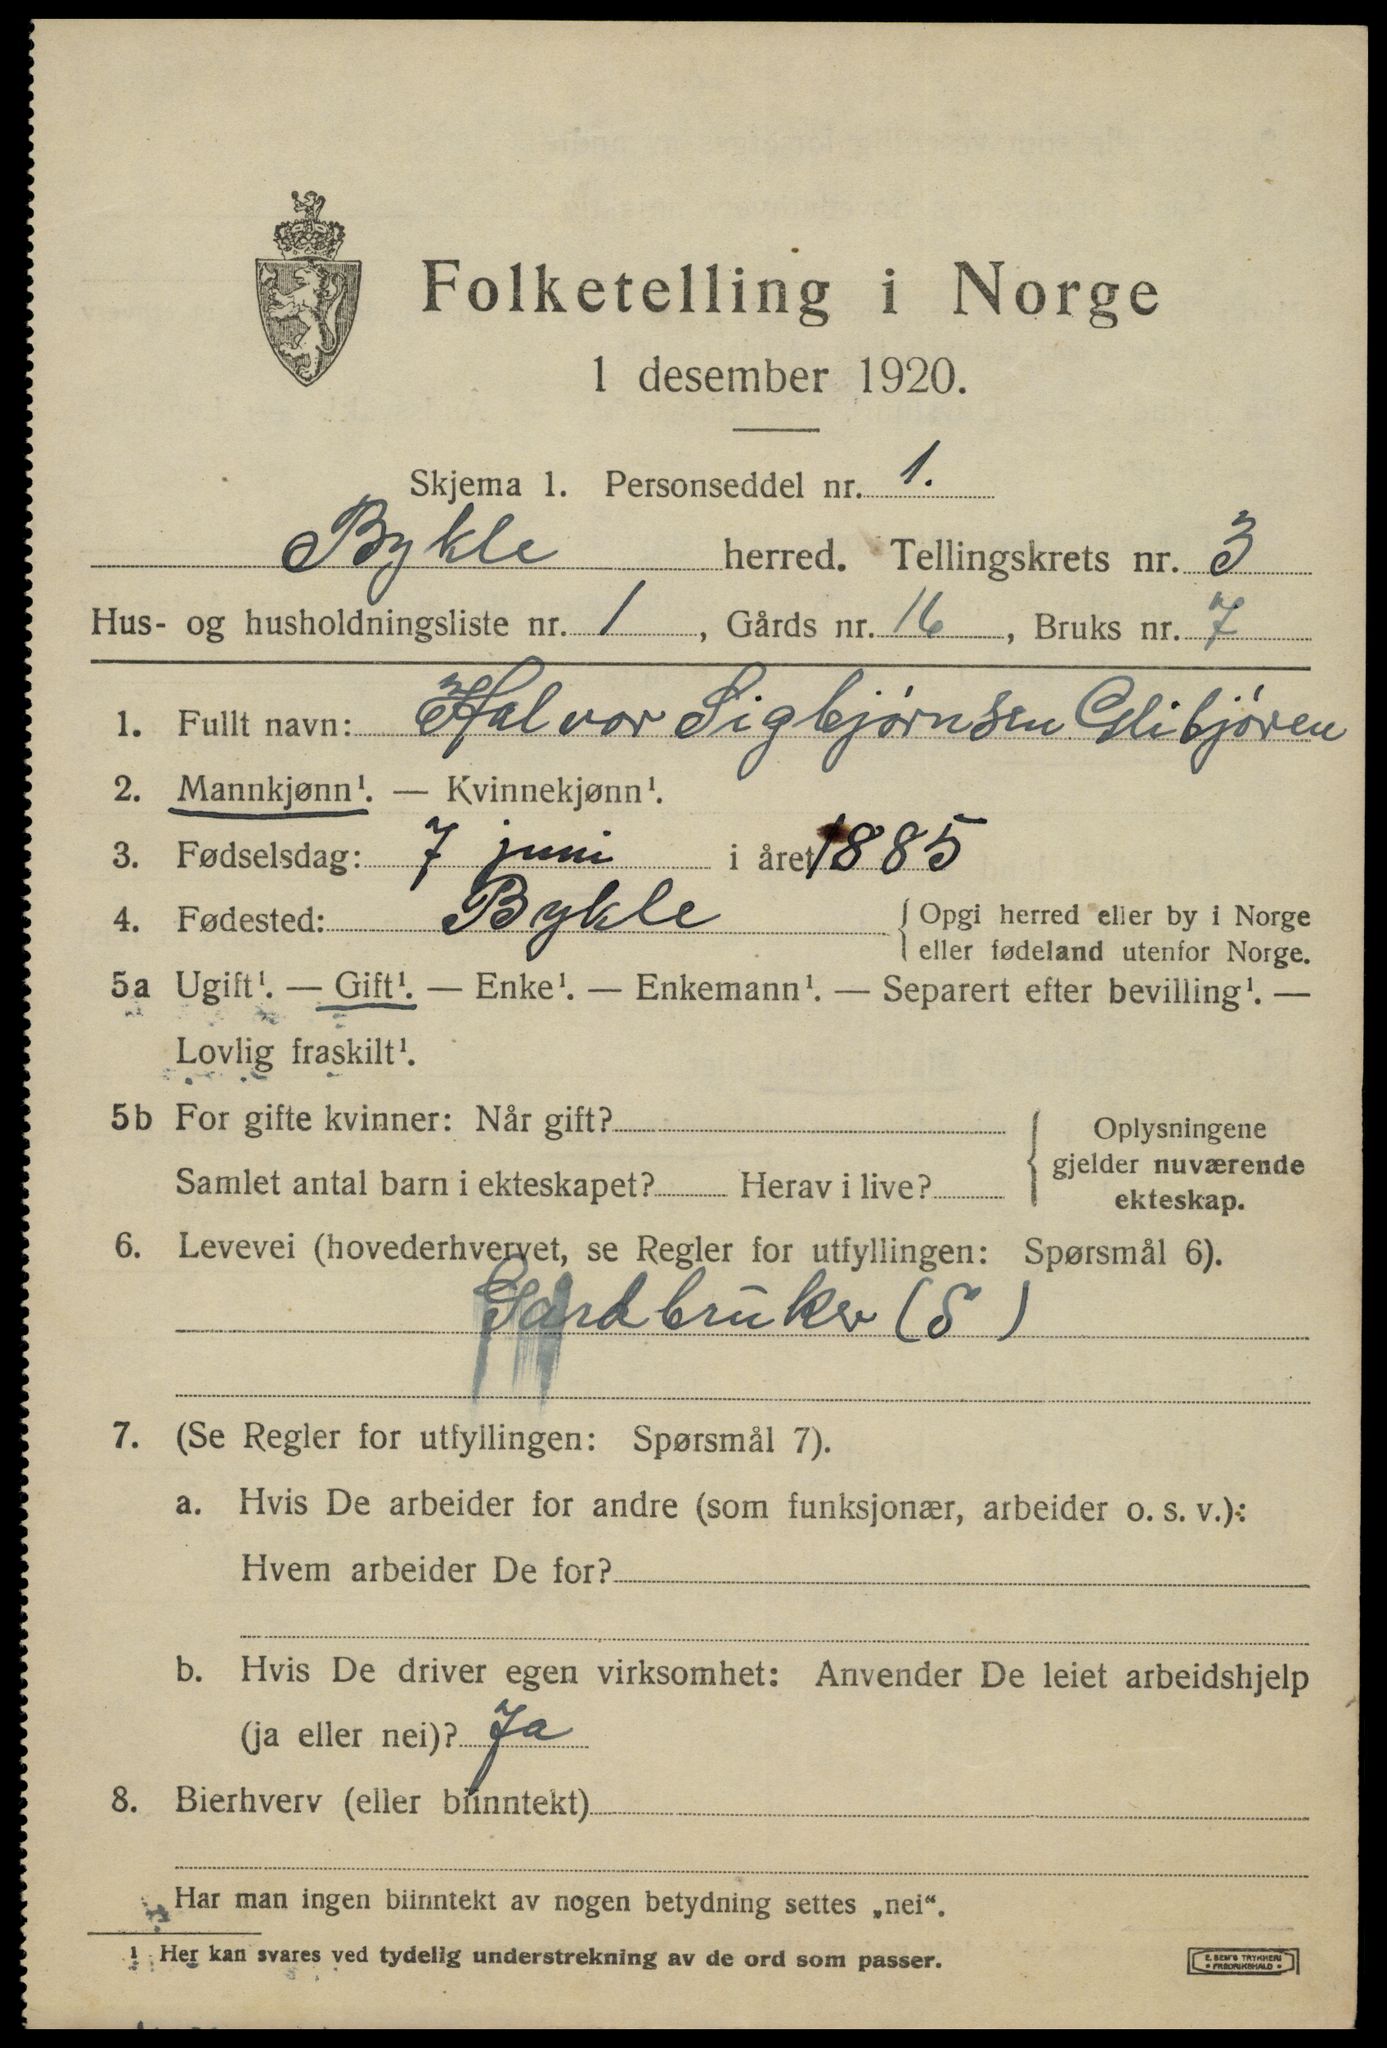 Folketelling i Norge
1 desember 1920.
Skjema 1. Personseddel nr. 1.
Bykle herred. Tellingskrets nr. 3
Hus- og husholdningsliste nr. 1, Gårds nr. 16, Bruks nr. 7
1. Fullt navn: Halvor Sigbjørnsen Glibjøren
2. Mannkjønn¹. — Kvinnekjønn¹.
3. Fødselsdag: 7 juni i året 1885
4. Fødested: Bykle { Opgi herred eller by i Norge
eller fødeland utenfor Norge.
5a Ugift¹. — Gift¹. — Enke¹. — Enkemann¹. — Separert efter bevilling¹. —
Lovlig fraskilt¹.
5b For gifte kvinner: Når gift?
Samlet antal barn i ekteskapet? Herav i live?
{ Oplysningene
gjelder nuværende
ekteskap.
6. Levevei (hovederhvervet, se Regler for utfyllingen: Spørsmål 6).
Gardbruker (S)
7. (Se Regler for utfyllingen: Spørsmål 7).
a. Hvis De arbeider for andre (som funksjonær, arbeider o. s. v.):
Hvem arbeider De for?
b. Hvis De driver egen virksomhet: Anvender De leiet arbeidshjelp
(ja eller nei)? Ja
8. Bierhverv (eller biinntekt)
Har man ingen biinntekt av nogen betydning settes „nei“.
¹ Her kan svares ved tydelig understrekning av de ord som passer.
E. SEM'S TRYKKERI
• FREDRIKSHALD •